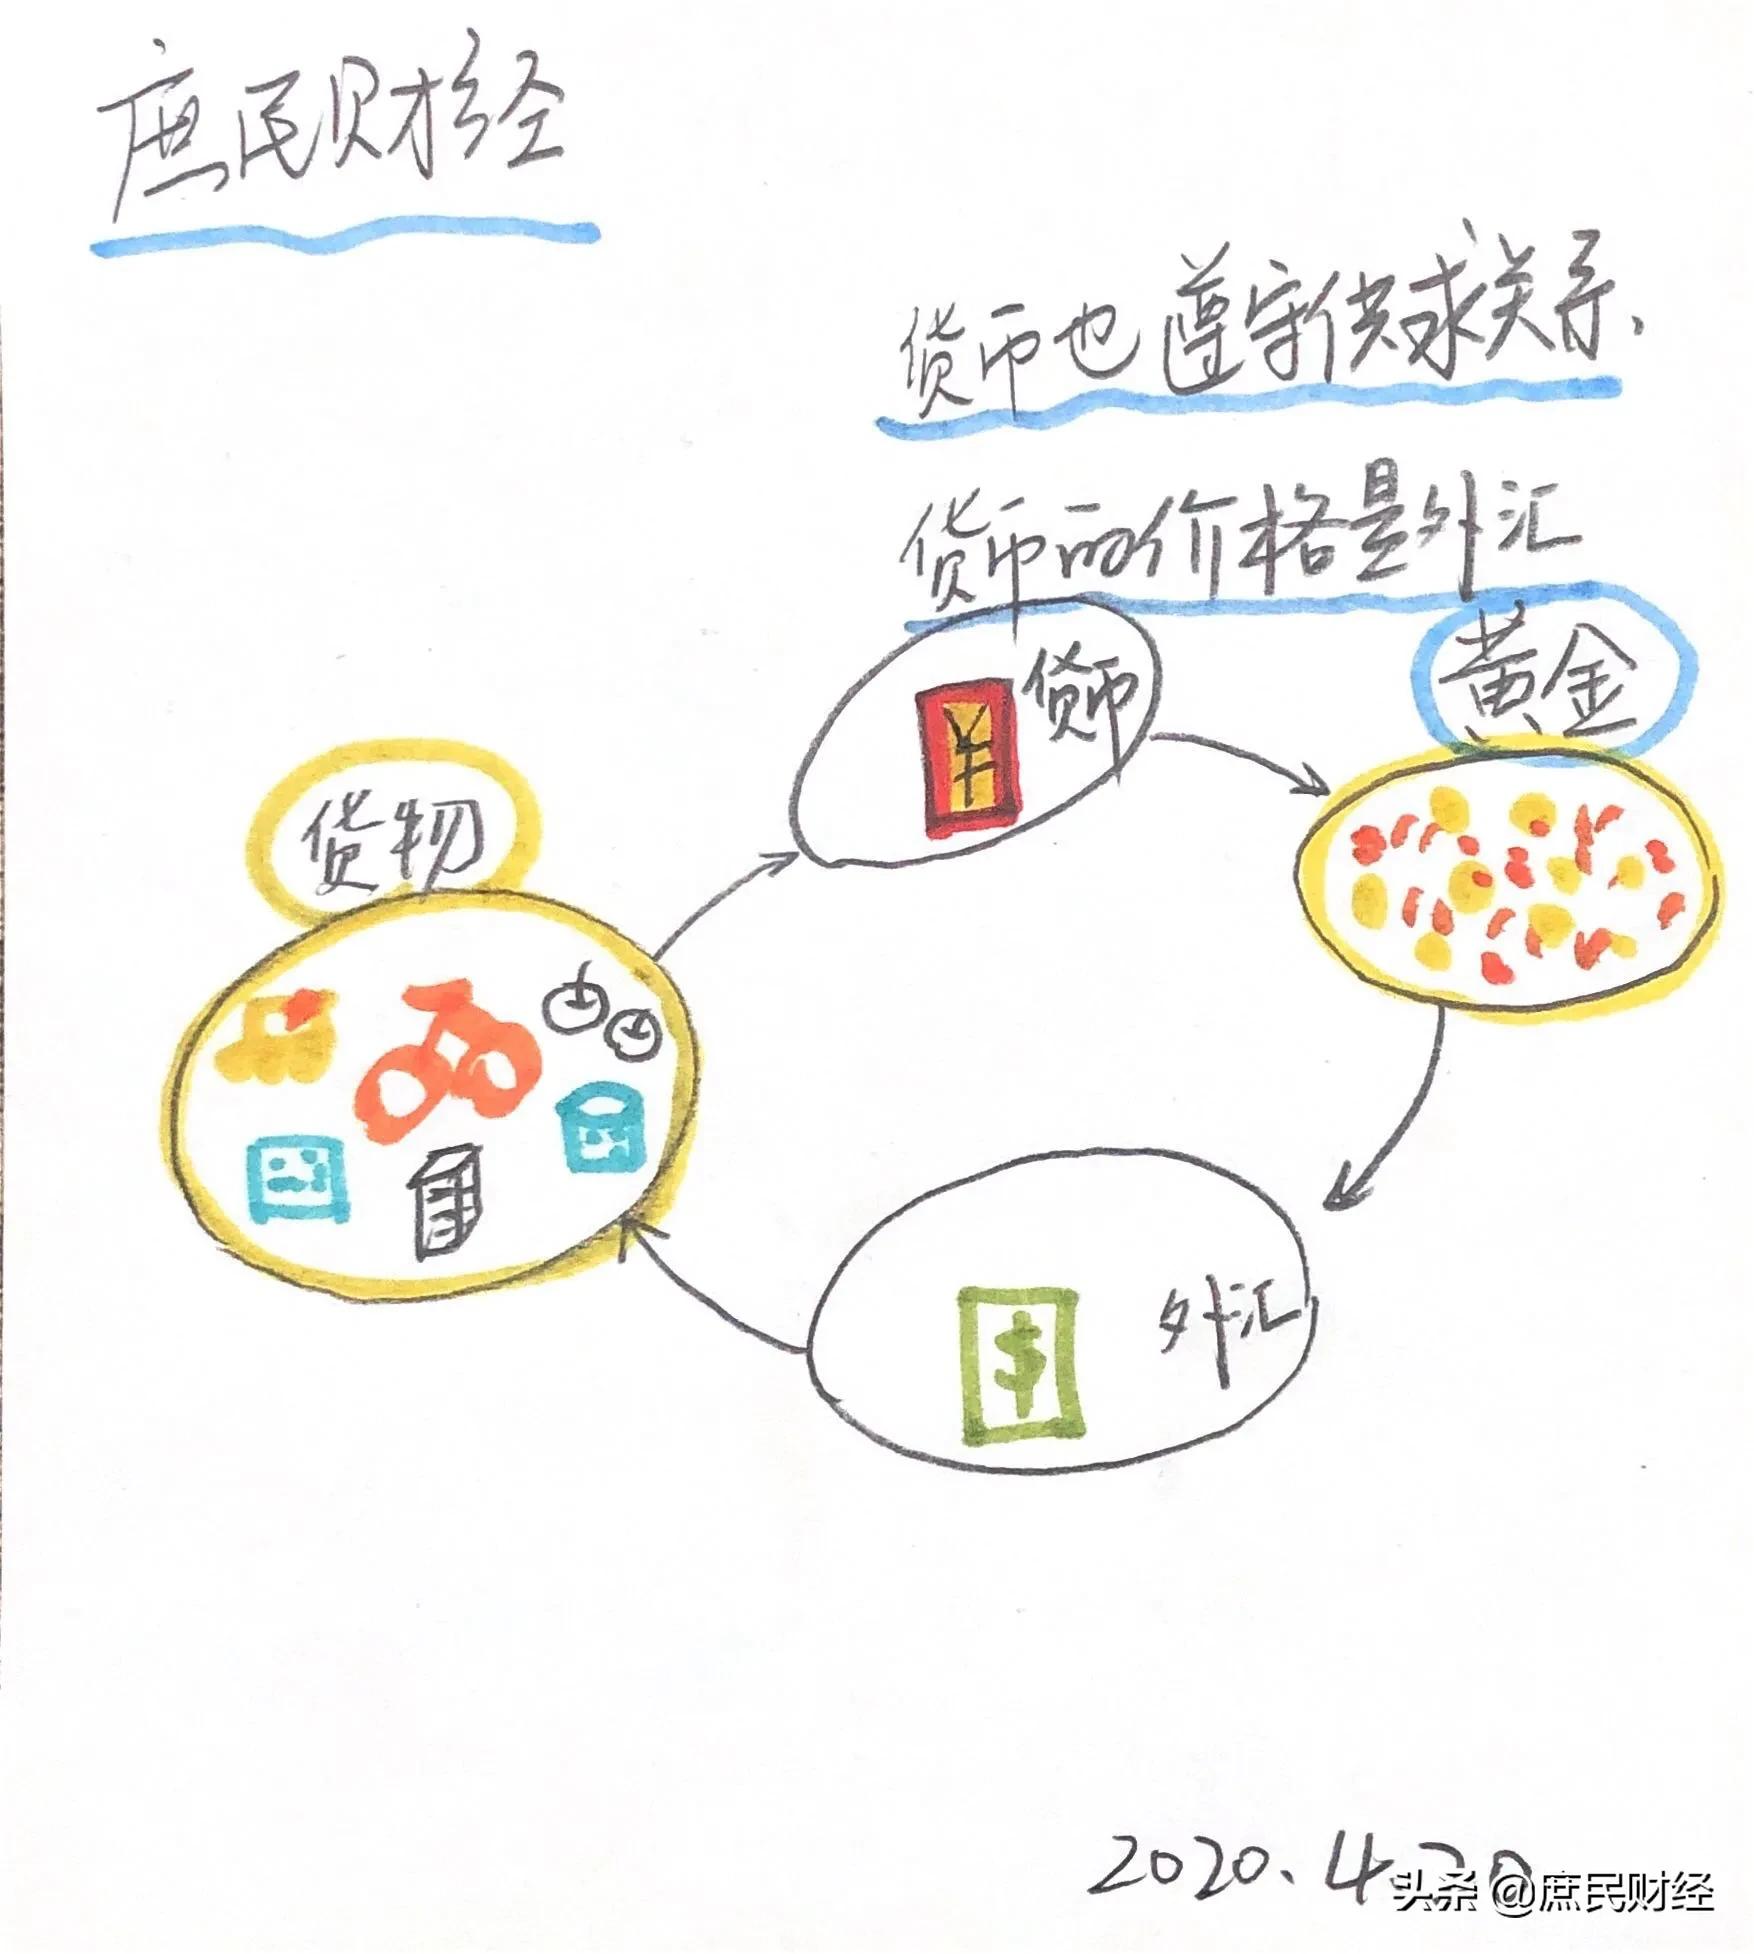 庶民财经
货币也遵守供求关系.
货币的价格是外汇
货币
黄金
¥
货物
外汇
$
2020.4.20
头条 @庶民财经